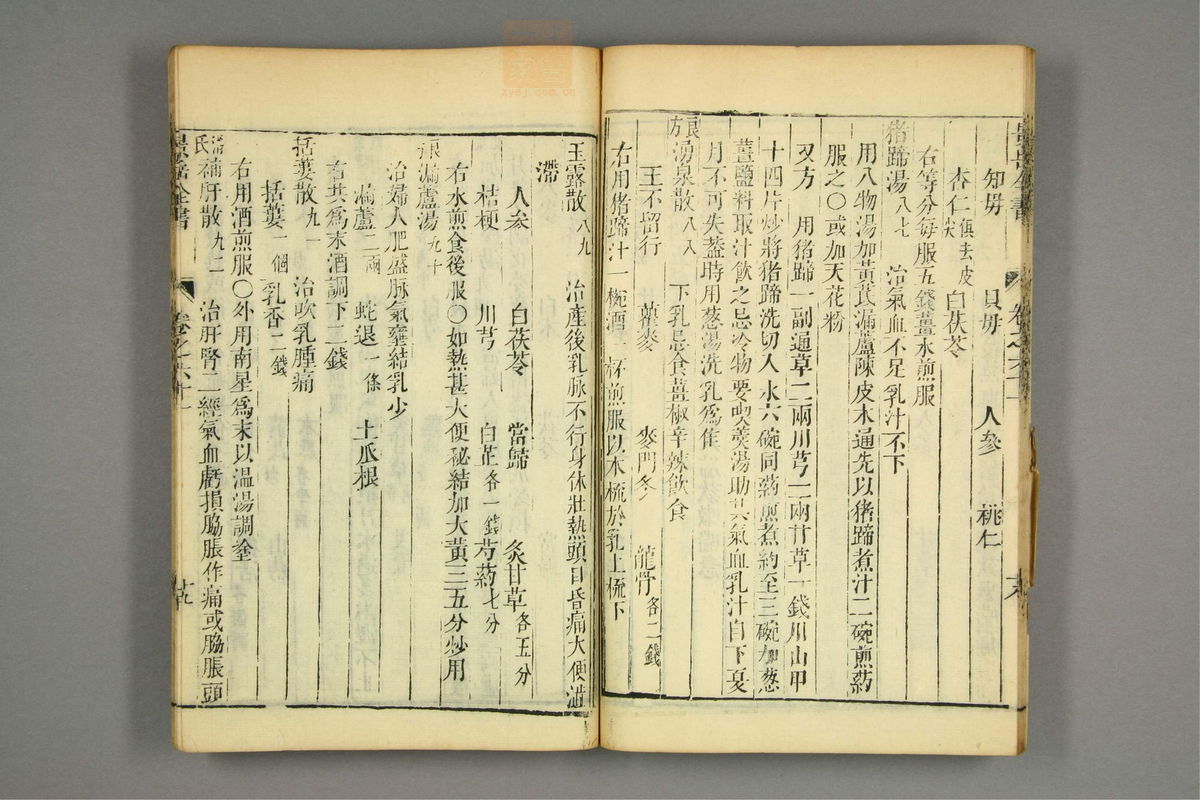 知母　貝母　人參　桃仁
杏仁俱去皮尖　白茯苓
右等分每服五錢薑水煎服
猪蹄湯八七　治氣血不足乳汁不下
用八物湯加黃芪漏蘆陳皮木通先以猪蹄煮汁二碗煎藥
服之〇或加天花粉
又方　用猪蹄一副通草二兩川芎一兩甘草一錢川山甲
十四片炒將猪蹄洗切入水六碗同藥煎煮約至三碗加葱
薑鹽料取汁飲之忌冷物要喫羮湯助其氣血乳汁自下夏
月不可失蓋時用葱湯洗乳爲佳
良方湧泉散八八　下乳忌食薑椒辛辣飲食
王不留行　瞿麥　麥門冬　龍骨各二錢
右用猪蹄汁一椀酒一杯煎服以木梳於乳上梳下
玉露散八九　治產後乳脉不行身体壯熱頭目昏痛大便澁
滯
人參　白茯苓　當歸　炙甘草各五分
桔梗　川芎　白芷各一錢　芍藥七分
右水煎食後服〇如熱甚大便秘結加大黃三五分炒用
良方漏蘆湯九十
治婦人肥盛脉氣壅結乳少
漏蘆二兩　蛇退一條　土瓜根
右共爲末酒調下二錢
括蔞散九一　治吹乳腫痛
括蔞一個　乳香二錢
右用酒煎服〇外用南星爲末以温湯調塗
滑氏補肝散九二　治肝腎二經氣血虧損脇脹作痛或脇脹頭
景岳全書
卷之六十一
景岳全書
卷之六十一
zysj.com.cn